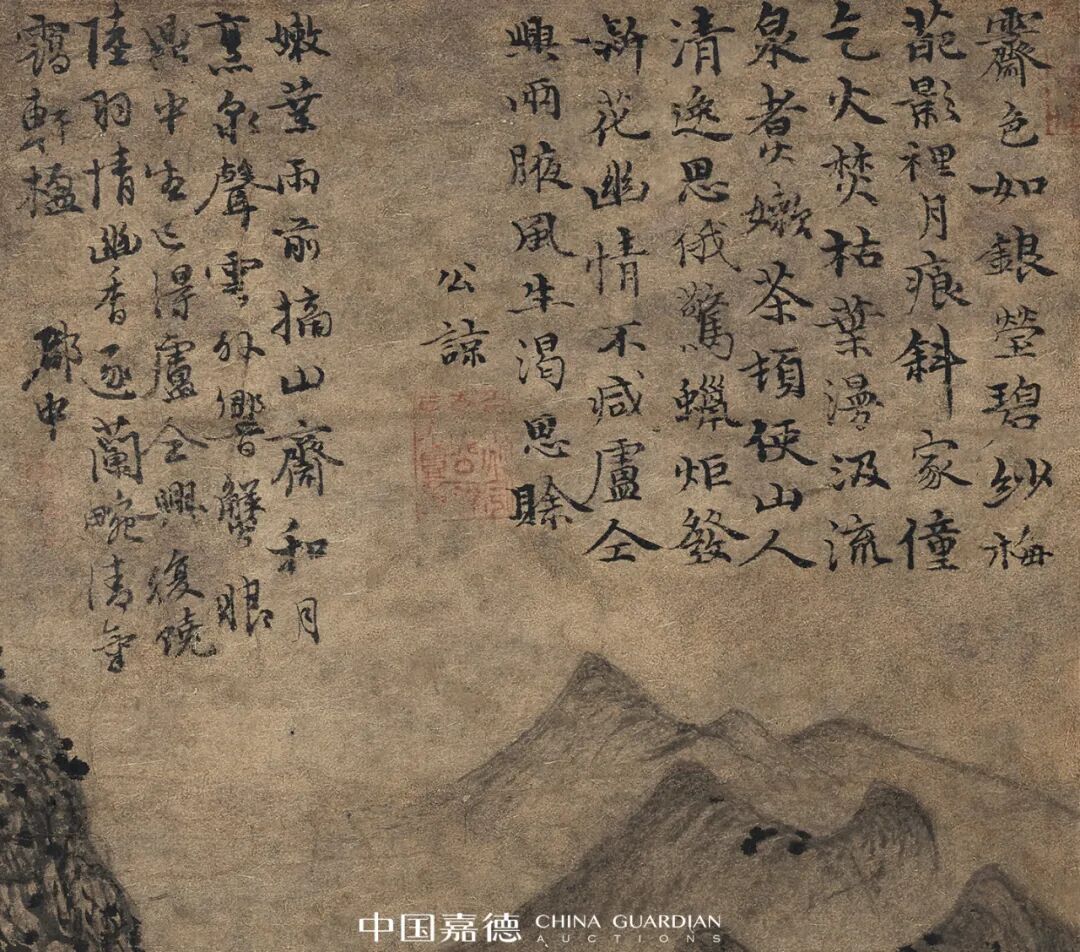 霽色如銀瑩碧紗梅
葩影裡月痕斜家僮
乞火焚枯葉漫汲流
泉煮嫩茶頓使山人
清逸思俄驚蠟炬發
新花幽情不減盧仝
興兩腋風生渴思賒
公諒
嫩葉雨前摘山齋和月
烹泉聲雲外響蟹眼
鼎中生已得盧仝興復饒
陸羽情幽香逐蘭畹清氣
靄軒楹
中国嘉德 CHINA GUARDIAN
AUCTIONS